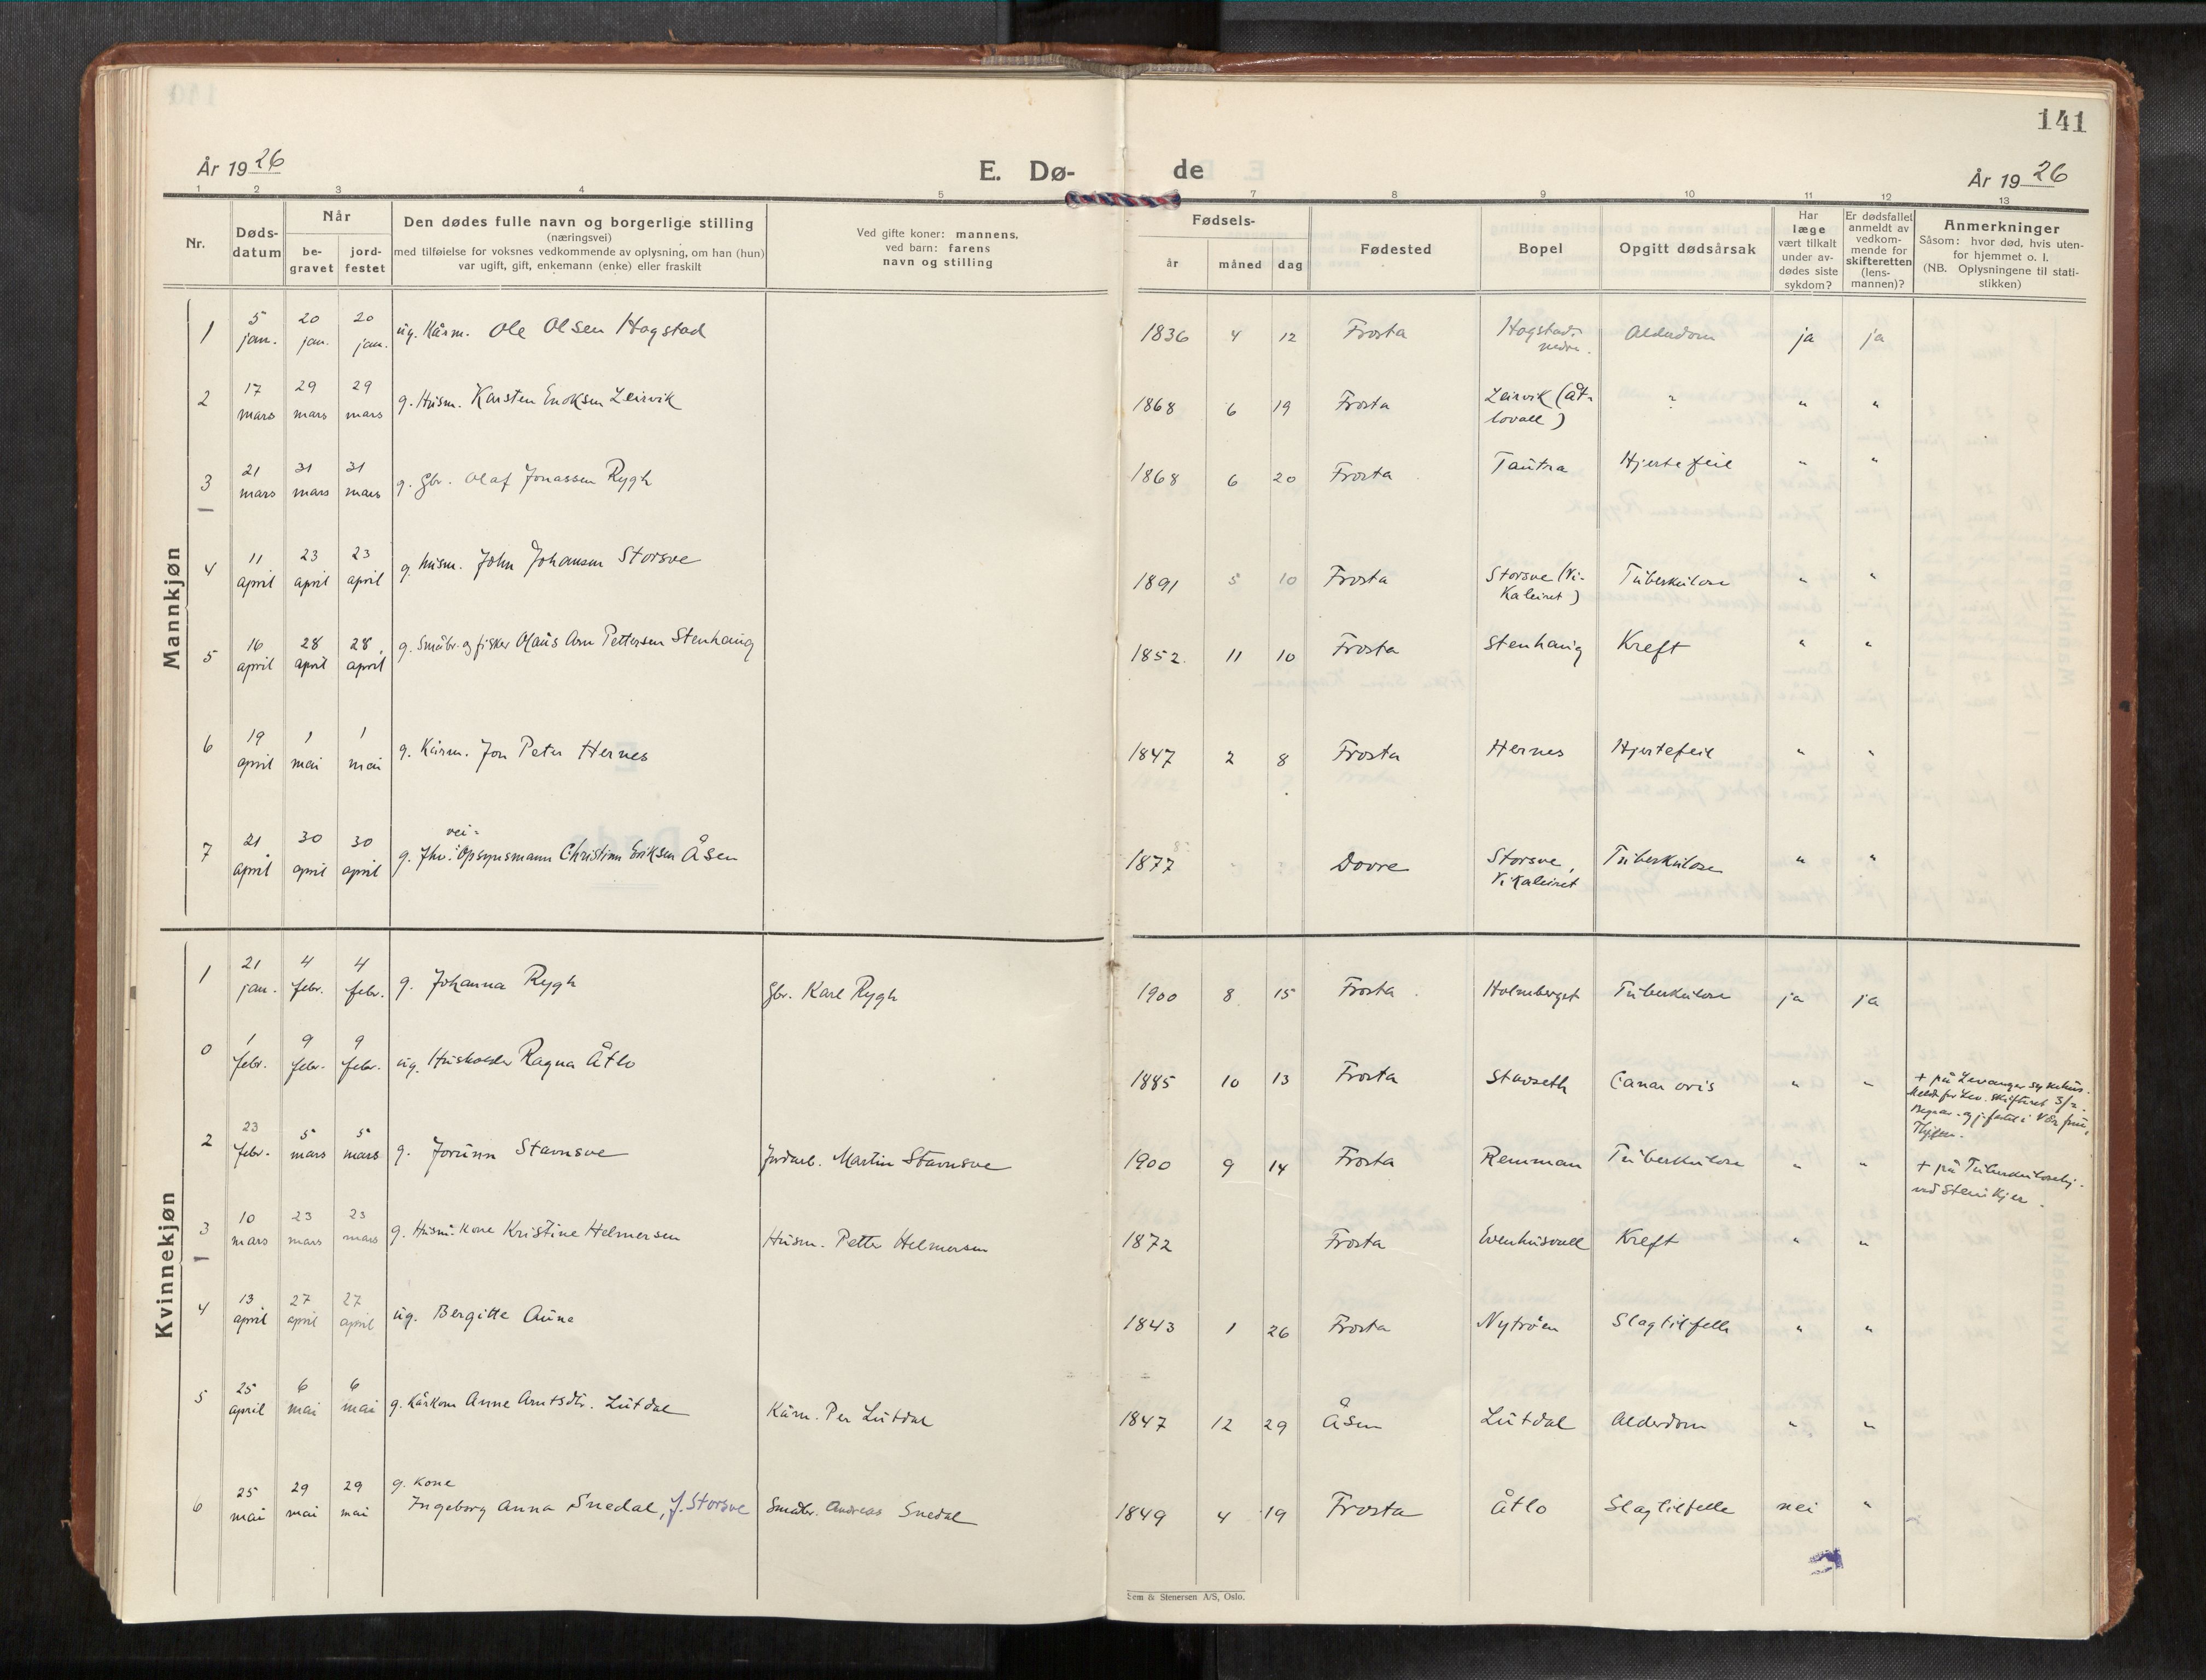 141
År 1926
E. Dø-
de
År 1926
1 2 3 4 5 7 8 9 10 11 12 13
Nr.
Døds-
datum
Når
be-
gravet
jord-
festet
Den dødes fulle navn og borgerlige stilling
(næringsvei)
med tilføielse for voksnes vedkommende av oplysning, om han (hun)
var ugift, gift, enkemann (enke) eller fraskilt
Ved gifte koner: mannens,
ved barn: farens
navn og stilling
Fødsels-
år måned dag
Fødested
Bopel
Opgitt dødsårsak
Har
læge
vært tilkalt
under av-
dødes siste
sykdom?
Er dødsfallet
anmeldt av
vedkom-
mende for
skifteretten
(lens-
mannen)?
Anmerkninger
Såsom: hvor død, hvis uten-
for hjemmet o. l.
(NB. Oplysningene til stati-
stikken)
Mannkjøn
1 5 jan. 20 jan. 20 jan. ug. Kårm. Ole Olsen Hogstad 1836 4 12 Frosta Hogstad nedre. Alderdom ja ja
2 17 mars 29 mars 29 mars g. Husm. Karsten Enoksen Leirvik 1868 6 19 Frosta Leirvik (Åt-
lovall) ? " "
3 21 mars 31 mars 31 mars g. Gbr. Olaf Jonassen Rygh 1868 6 20 Frosta Tautra Hjertefeil " "
4 11 april 23 april 23 april g. husm. John Johansen Storsve 1891 5 10 Frosta Storsve (Vi-
kaleiret) Tuberkulose " "
5 16 april 28 april 28 april g. Småbr. og fisker Olaus Arn Pettersen Stenhaug 1852. 11 10 Frosta Stenhaug Kreft " "
6 19 april 1 mai 1 mai g. Kårm. Jon Peter Hernes 1847 2 8 Frosta Hernes Hjertefeil " "
vei-
7 21 april 30 april 30 april g. Jhv. Opsynsmann Christian Eriksen Åsen 1877 Dovre Storsve,
Vikaleiret Tuberkulose " "
Kvinnekjøn
1 21 jan. 4 febr. 4 febr. g. Johanna Rygh Gbr. Karl Rygh 1900 8 15 Frosta Holmberget Tuberkulose ja ja
0 1 febr. 9 febr. 9 febr. ug. Husholder Ragna Åtlo 1885 10 13 Frosta Stavseth Cancer ovis " " + på Levanger sykehus.
Meldt for Lev. skifteret 3/2.
2 23 febr. 5 mars 5 mars g. Jorunn Stavnsve Jordarb. Martin Stavnsve 1900 9 14 Frosta Remman Tuberkulose " " + på Tuberkulosehj.
ved Steinkjer.
3 10 mars 23 mars 23 mars g. Husm. kone Kristine Helmersen Husm. Petter Helmersen 1872 Frosta Evenhusvall Kreft " "
4 13 april 27 april 27 april ug. Bergitte Aune 1843 1 26 Frosta Nytrøen Slagtilfelle " "
5 25 april 6 mai 6 mai g. Kårkone Anne Arntsdtr. Lutdal Kårm. Per Lutdal 1847 12 29 Åsen Lutdal Alderdom " "
g. Kone
6 25 mai 29 mai 29 mai Ingeborg Anna Snedal, f. Storsve Småbr. Andreas Snedal 1849 4 19 Frosta Åtlo Slagtilfelle nei "
Sem & Stenersen A/S, Oslo.